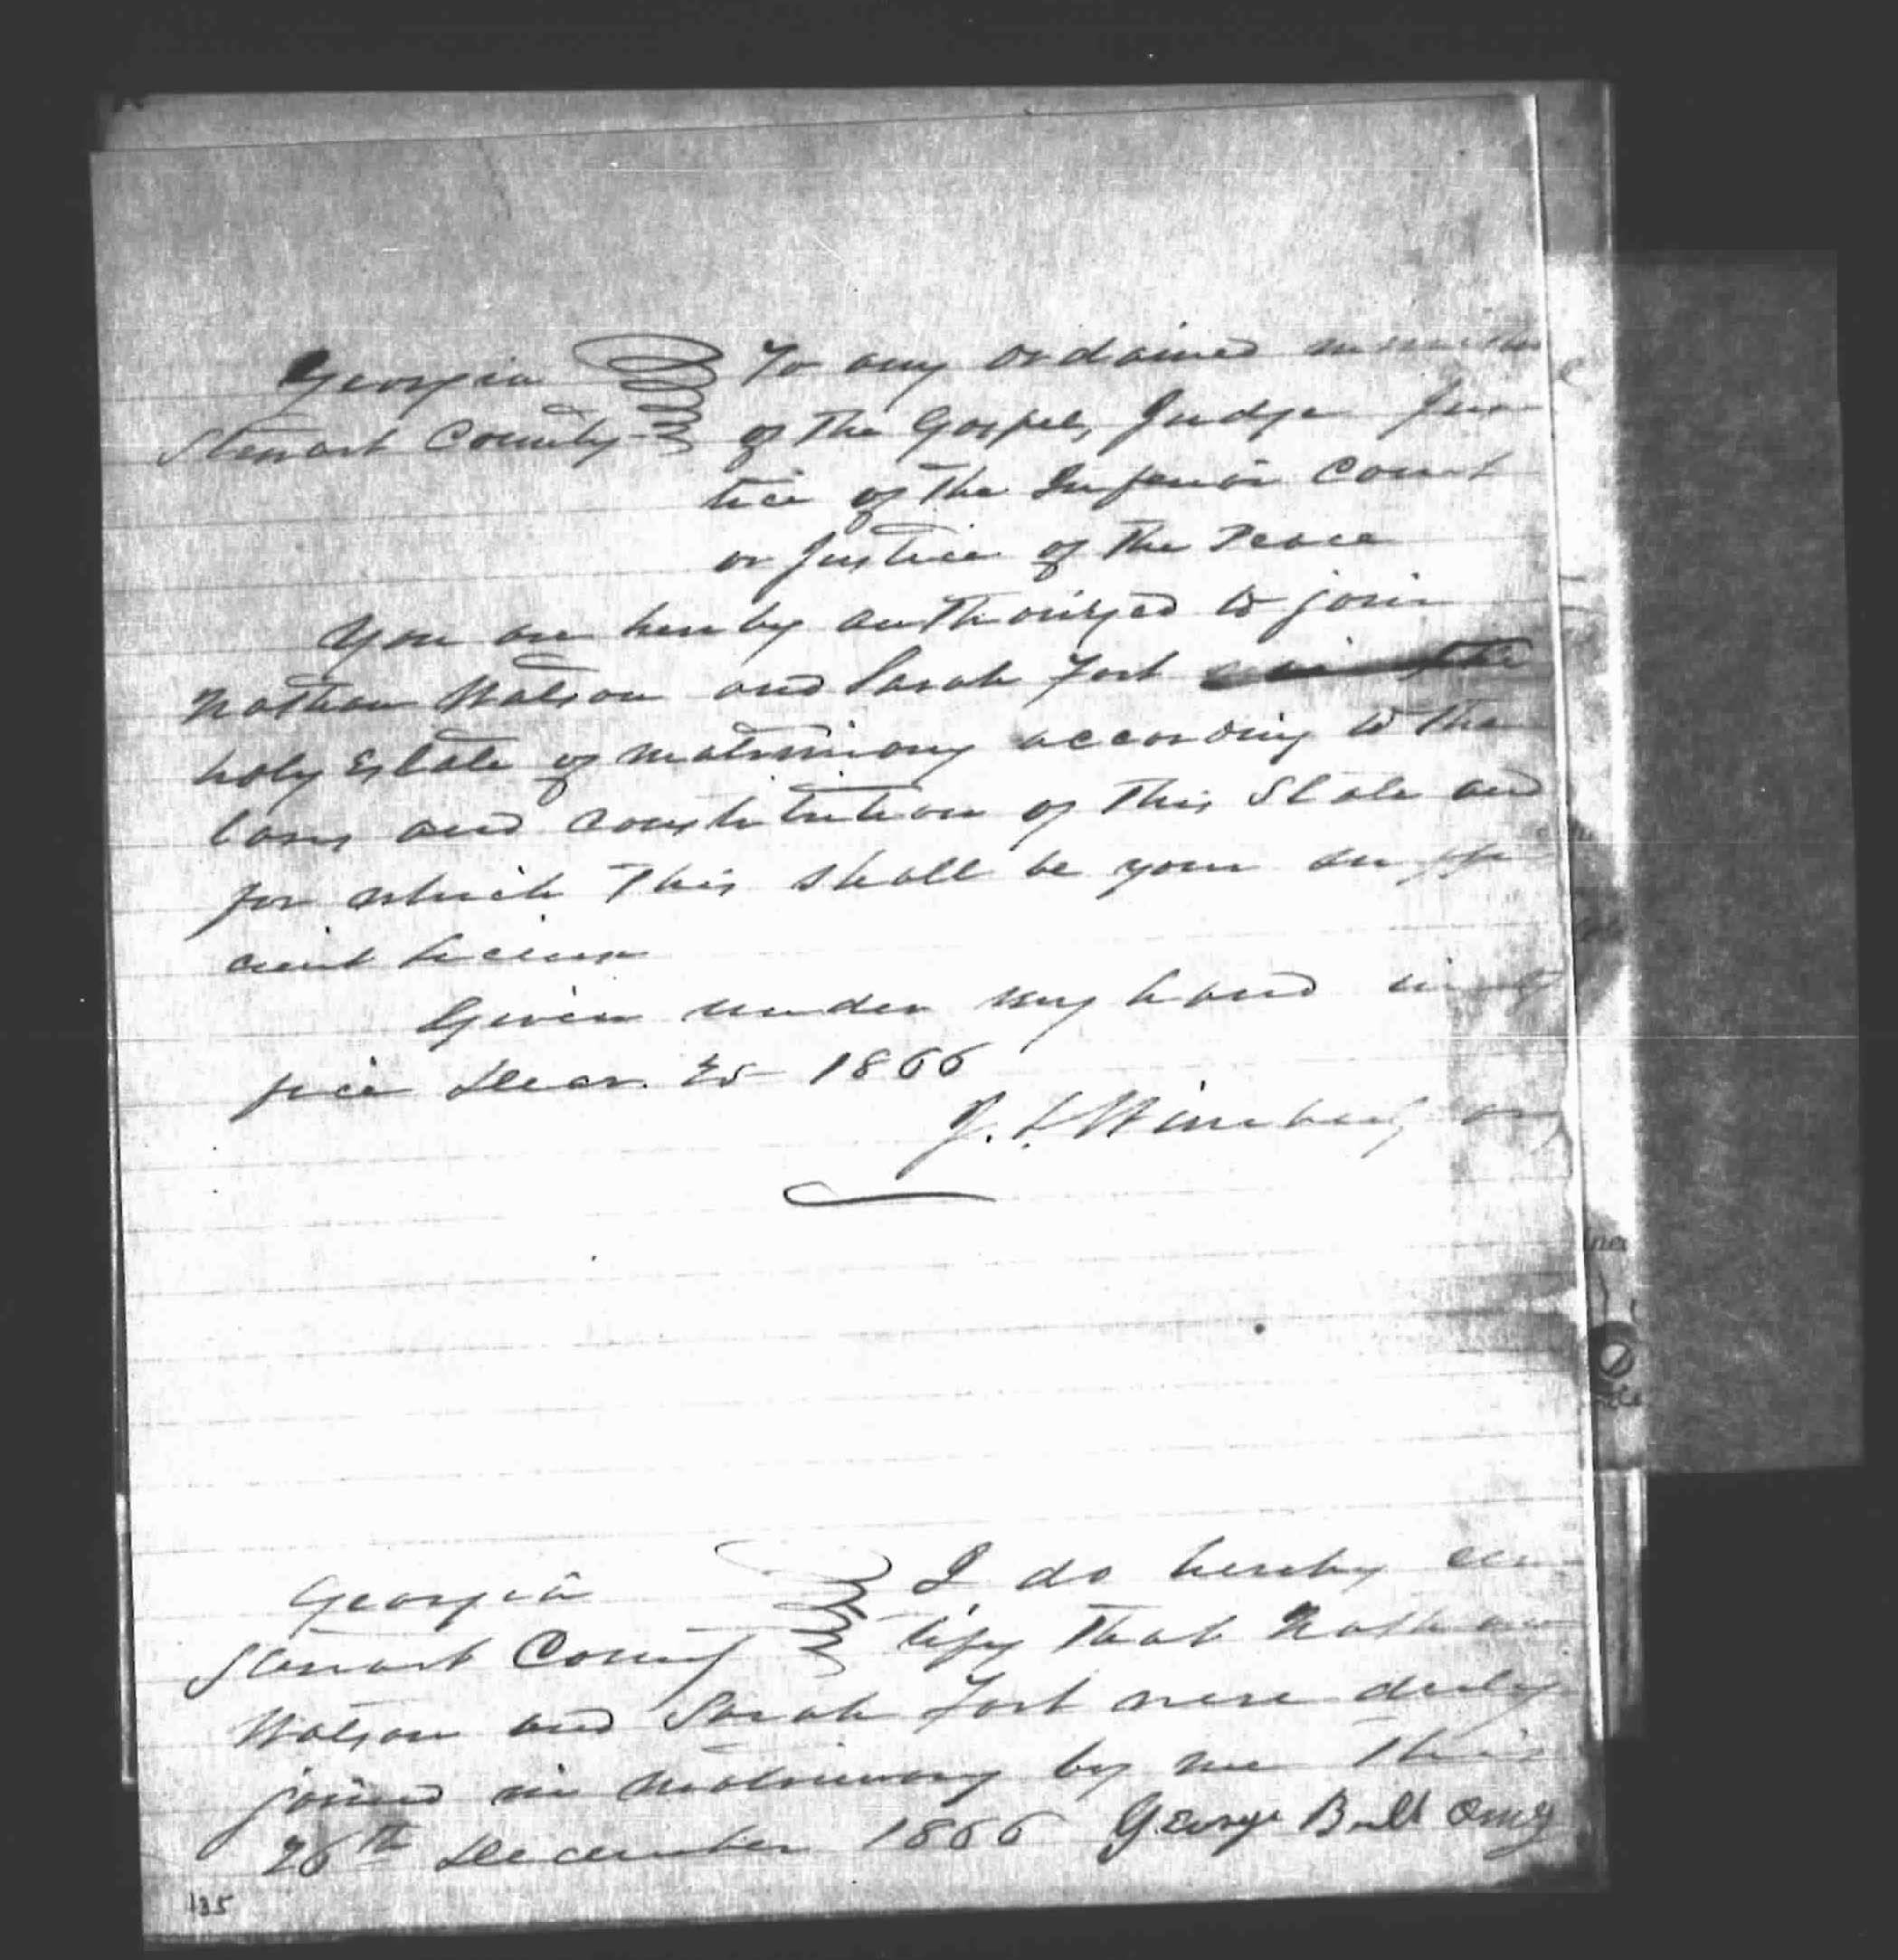 Georgia To any ordained
Stewart County of the Gospel, Judge Jus-
tice of the Inferior Court
or Justice of the Peace
You are hereby authorized to join
Nathan Watson and Sarah Fort in the
holy Estate of matrimony according to the
laws and constitution of this State and
for which this shall be your suffi
cient license
Given under my hand in of
fice Decr. 25 1866
J. L. Wimberly Ordy
Georgia I do hereby cer
Stewart County tify that Nathan
Watson and Sarah Fort were duly
joined in matrimony by me this
26th December 1866 George Ordy
135